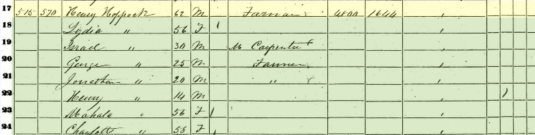 17 515 570 Henry Hoppock 62 M Farmer 4000 1644
18 Lydia " 56 F
19 Israel " 30 M Ms Carpenter
20 George " 25 M Farmer
21 Jonathan " 20 M "
22 Henry " 14 M
23 Mahala " 56 F
24 Charlott " 55 F